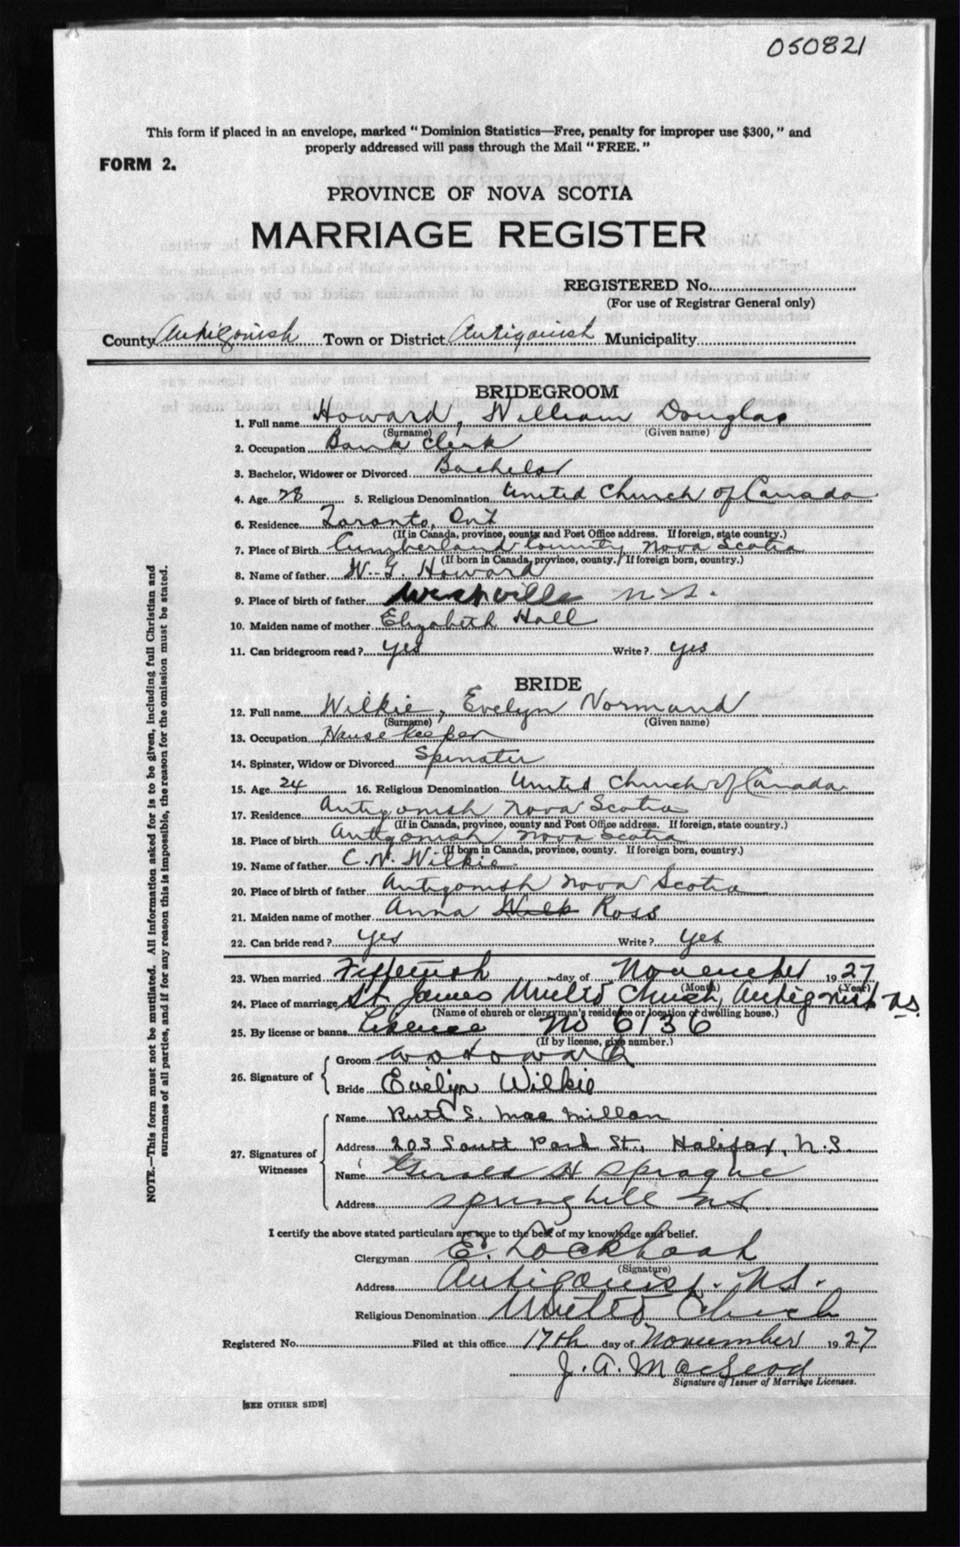 050821
This form if placed in an envelope, marked "Dominion Statistics—Free, penalty for improper use $300," and
properly addressed will pass through the Mail "FREE."
FORM 2.
PROVINCE OF NOVA SCOTIA
MARRIAGE REGISTER
REGISTERED No.
(For use of Registrar General only)
County Antigonish Town or District Antigonish Municipality
BRIDEGROOM
1. Full name Howard, William Douglas
(Surname) (Given name)
2. Occupation Bank Clerk
3. Bachelor, Widower or Divorced Bachelor
4. Age 28 5. Religious Denomination United Church of Canada
6. Residence Toronto, Ont
(If in Canada, province, county and Post Office address. If foreign, state country.)
7. Place of Birth Cumberland County, Nova Scotia
(If born in Canada, province, county. If foreign born, country.)
8. Name of father W. G. Howard
9. Place of birth of father N.S.
10. Maiden name of mother Elizabeth Hall
11. Can bridegroom read? yes Write? yes
BRIDE
12. Full name Wilkie, Evelyn Normand
(Surname) (Given name)
13. Occupation Housekeeper
14. Spinster, Widow or Divorced Spinster
15. Age 24 16. Religious Denomination United Church of Canada
17. Residence Antigonish Nova Scotia
(If in Canada, province, county and Post Office address. If foreign, state country.)
18. Place of birth Antigonish Nova Scotia
(If born in Canada, province, county. If foreign born, country.)
19. Name of father C. N. Wilkie
20. Place of birth of father Antigonish Nova Scotia
21. Maiden name of mother Anna Ross
22. Can bride read? yes Write? yes
23. When married Fifteenth day of November 1927
(Month) (Year)
24. Place of marriage St. James United Church, Antigonish N.S.
(Name of church or clergyman's residence or location of dwelling house.)
25. By license or banns License No 6136
(If by license, give number.)
26. Signature of { Groom W D Howard
Bride Evelyn Wilkie
27. Signatures of Witnesses { Name Ruth S. MacMillan
Address 203 South Park St., Halifax, N.S.
Name Gerald H Sprague
Address Springhill N.S.
I certify the above stated particulars are true to the best of my knowledge and belief.
Clergyman E.
(Signature)
Address Antigonish. N.S.
Religious Denomination United Church
Registered No. Filed at this office 17th day of November 1927
J. A. MacLeod
Signature of Issuer of Marriage Licenses.
[SEE OTHER SIDE]
NOTE.—This form must not be mutilated. All information asked for is to be given, including full Christian and
surnames of all parties, and if for any reason this is impossible, the reason for the omission must be stated.